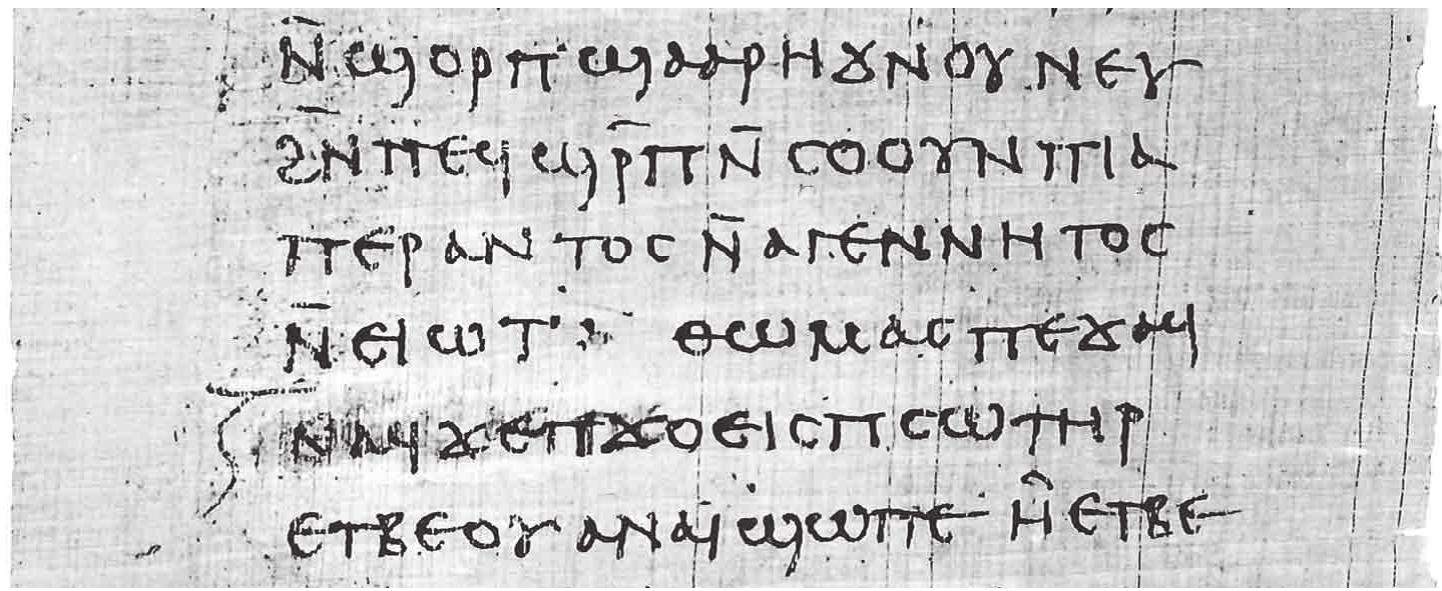 ⲛ̄ϣⲟⲣⲡ ϣⲁⲁⲣⲏϫⲛⲟⲩ ⲛⲉⲩ
ϩⲛ̄ⲡⲉϥϣⲣ̄ⲡⲛ̄ⲥⲟⲟⲩⲛ ⲡⲓⲁ
ⲡⲉⲣⲁⲛⲧⲟⲥ ⲛ̄ⲁⲅⲉⲛⲛⲏⲧⲟⲥ
ⲛ̄ⲉⲓⲱⲧ· : ⲑⲱⲙⲁⲥ ⲡⲉϫⲁϥ
ⲛⲁϥ ϫⲉⲡϫⲟⲉⲓⲥ ⲡⲥⲱⲧⲏⲣ
ⲉⲧⲃⲉⲟⲩ ⲁⲛⲁⲓ̈ ϣⲱⲡⲉ ⲏ̂ ⲉⲧⲃⲉ